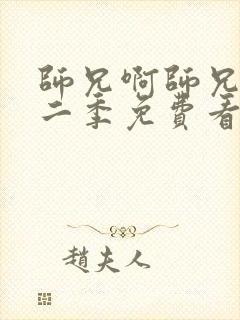 師兄啊師兄
二季免費看
趙夫人